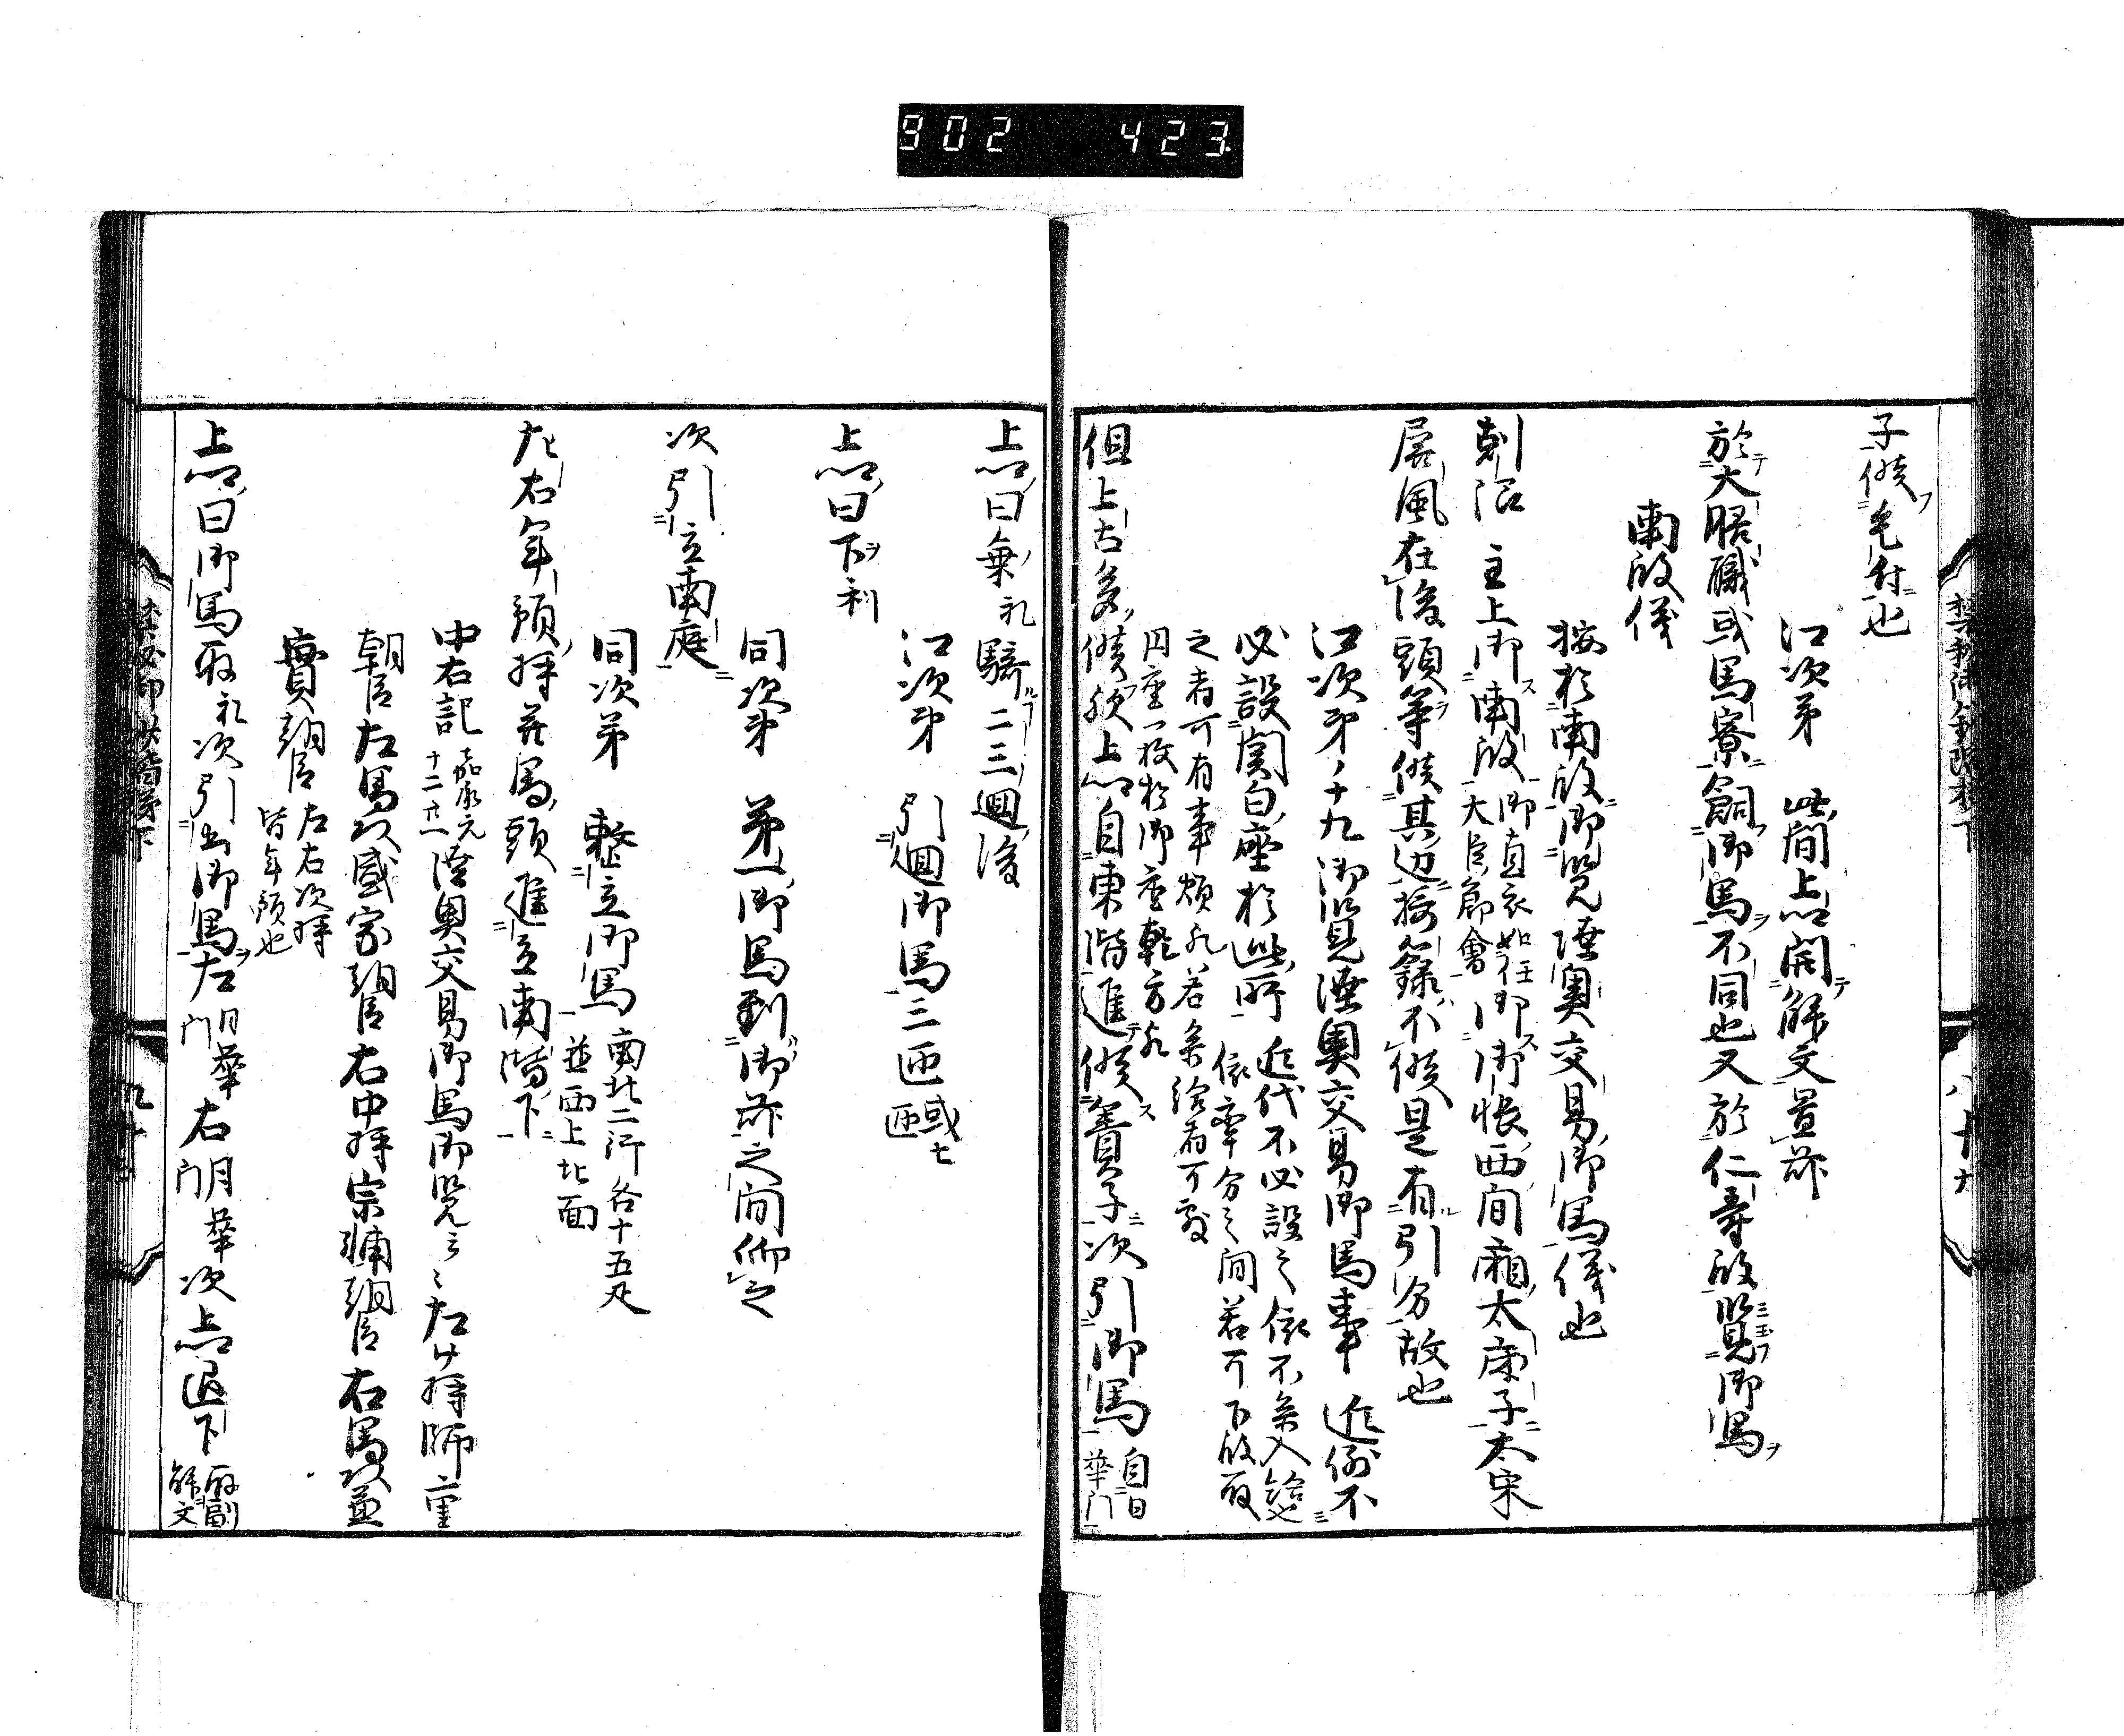 902 423
子候毛付也
江次第 此間上卿開解文置前
於大膳職或馬寮飼御馬不同也又於仁寿殿覧御馬
南殿儀
按於南殿御覧陸奥交易御馬儀也
剋限 主上御南殿 御直衣如任大臣節會 御御帳西間廂太床子太宋
屏風在後頭等候其辺摂籙不候是有引分故也
江次第ノ十九御覧陸奥交易御馬事 近例不
必設関白座於此所 近代不必設之依不参入給歟
依牽分之間若可下殿取
之者可有事煩九若参給者可敷
円座一枚於御座乾方歟
但上古多候歟上卿自東階進候簀子次引御馬 自日華門
上卿曰乗礼騎二三廻後
江次第 引廻御馬三匝 或七匝
上卿曰下利
同次第 第一御馬到御前之間仰之
次引立南庭
同次第 整立御馬 南北二行各十五疋並西上北面
左右年預将並馬頭進立南階下
中右記 嘉承元十二 陸奥交易御馬御覧云々左少将師重
朝臣左馬頭盛家朝臣右中将宗輔朝臣右馬頭兼
實朝臣 左右次将皆年預也
上卿曰御馬取礼次引出御馬左 日華門 右 月華門 次上卿退下 取副解文